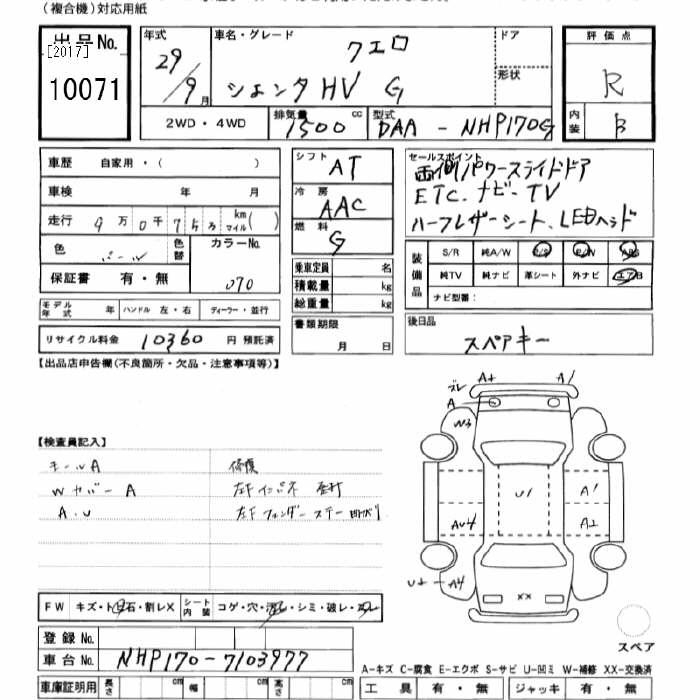 (複合機)対応用紙
出品No.
[2017]
10071
年式
29/9月
車名・グレード
クエロ
シエンタHV G
ドア
形状
評価点
R
内装
B
2WD・4WD
排気量
1500
cc
型式
DAA - NHP170G
車歴 自家用・( )
車検 年 月
走行
9万0千7
km
マイル
( )
色
パール
色替
カラーNo.
070
保証書 有・無
モデル年式 年
ハンドル 左・右
ディーラー・並行
リサイクル料金 10360 円 預託済
シフト
AT
冷房
AAC
燃料
G
乗車定員 名
積載量 kg
総重量 kg
書類期限
月 日
セールスポイント
両側パワースライドドア
ETC.ナビ・TV
ハーフレザーシート、LEDヘッド
装備品
S/R 純A/W P/S P/W ABS
純TV 純ナビ 革シート 外ナビ エアB
ナビ型番:
後日品
スペアキー
【出品店申告欄(不良箇所・欠品・注意事項等)】
【検査員記入】
モールA
Wカバー A
A.U
修復
左F インパネ
左F フェンダーステー
A+
A1
ズレ
A
W3
U1
A1
AU4
A2
U+ - A4
XX
スペア
FW キズ・ト石・割レX
シート内装
コゲ・穴・・シミ・破レ・
登録No.
車台No. NHP170-7103977
車庫証明用 長さ cm 幅 cm 高さ cm
A-キズ C-腐食 E-エクボ S-サビ U-凹ミ W-補修 XX-交換済
工具 有・無 ジャッキ 有・無